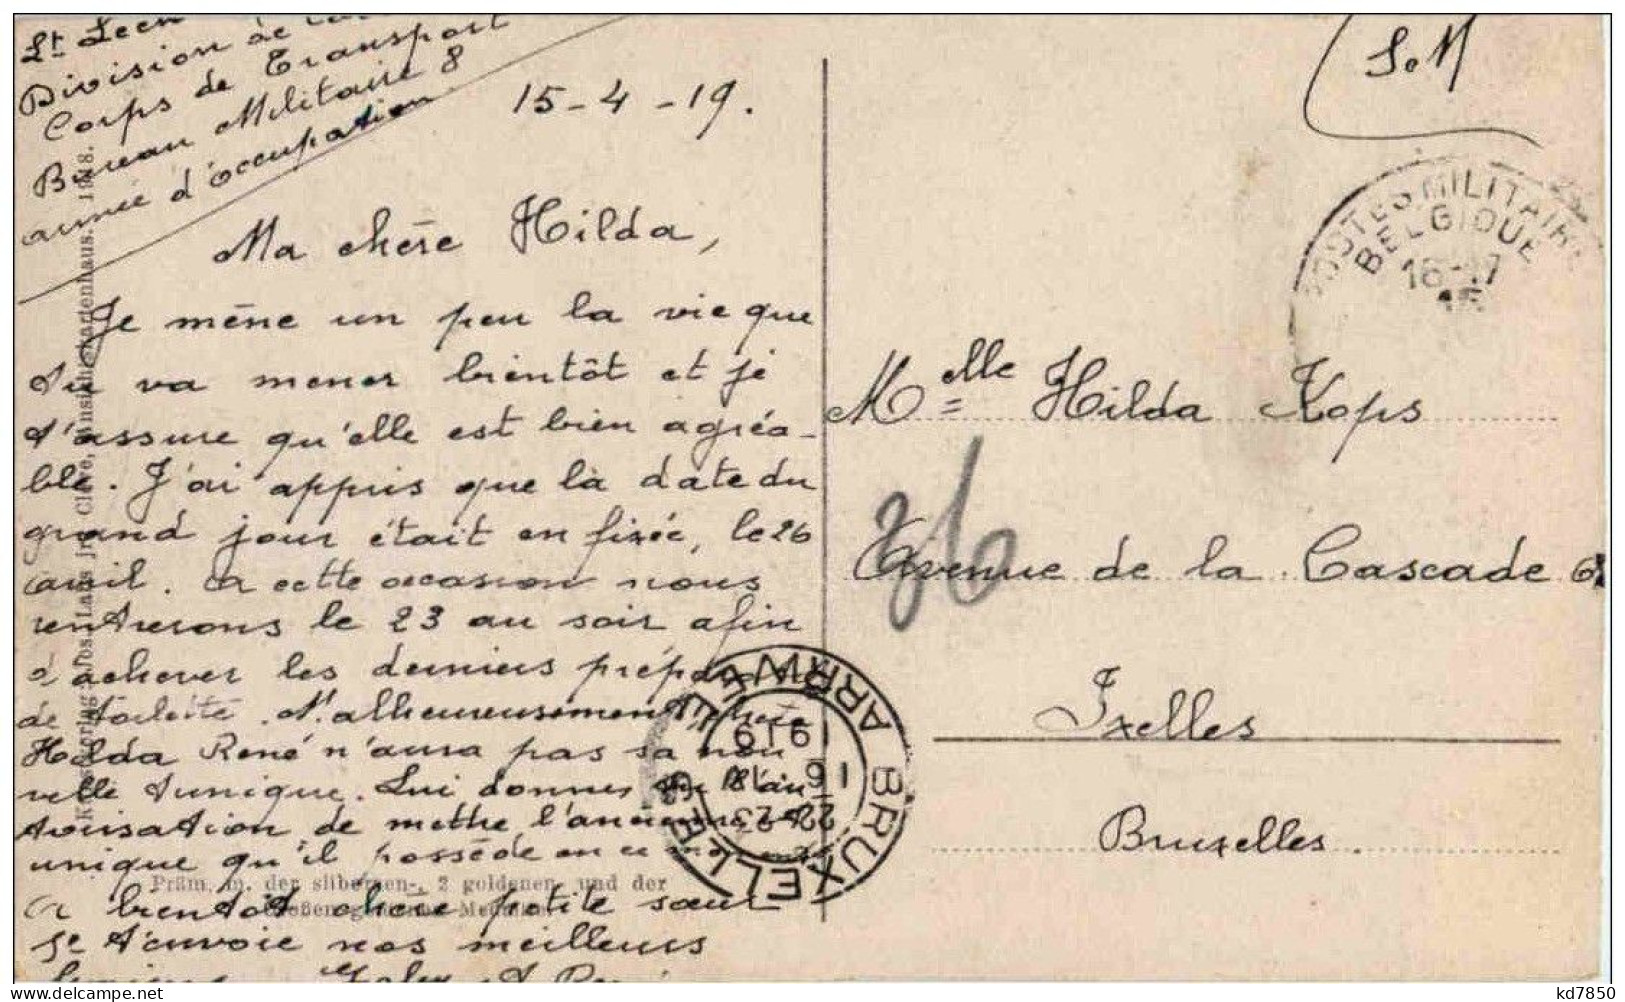 Lt Leen
Division de
Corps de Transport
Bureau Militaire 8
armée d'occupation
15-4-19.
S.M
POSTES MILITAIRE
BELGIQUE
16-17
Ma chère Hilda,
Je mène un peu la vie que
tu va mener bientôt et je
t'assure qu'elle est bien agréa-
ble. J'ai appris que la date du
grand jour était en fixée, le 26
avril. A cette occasion nous
rentrerons le 23 au soir afin
d'achever les derniers
de toilette. Malheureusement, chère
Hilda René n'aura pas sa nou
velle tunique. Lui donnes l'au
torisation de mettre l'ancienne
unique qu'il possède en ce
A bientôt chère petite sœur
Je t'envoie nos meilleurs
Melle Hilda Kops
26
Avenue de la Cascade
Ixelles
Bruxelles.
BRUXELLES
ARRIVÉE
1919
22-23
Präm. m. der silbernen-, 2 goldenen und der
kd7850